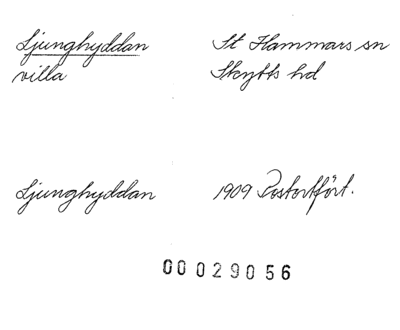 Ljunghyddan St Hammars sn
villa Skytts hd
Ljunghyddan 1909 Postortfört.
00029056